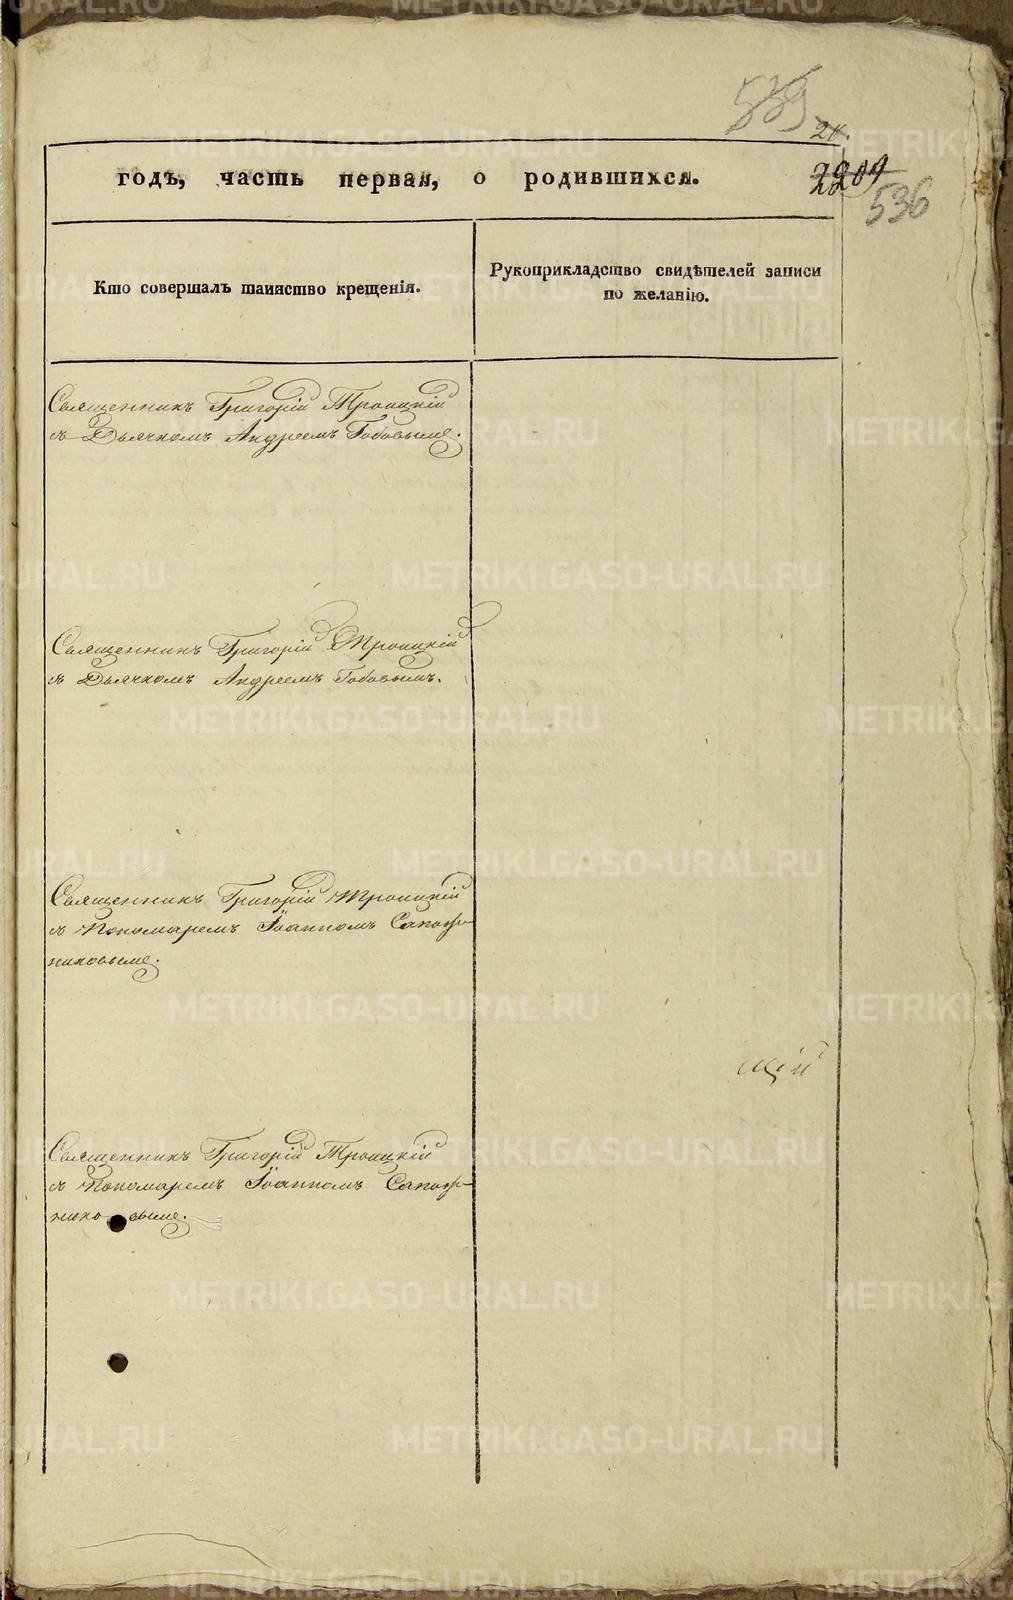 539
20.
годъ, часть первая, о родившихся.
2209
536
Кто совершалъ таинство крещенія.
Рукоприкладство свидѣтелей записи
по желанію.
Священникъ Григорій Троицкій
съ Дьячкомъ Андреемъ Бобовымъ.
Священникъ Григорій Троицкій
съ Дьячкомъ Андреемъ Бобовымъ.
Священникъ Григорій Троицкій
съ Пономаремъ Іоанномъ Сапож-
никовымъ.
щій
Священникъ Григорій Троицкій
съ Пономаремъ Іоанномъ Сапож-
никовымъ.
METRIKI.GASO-URAL.RU